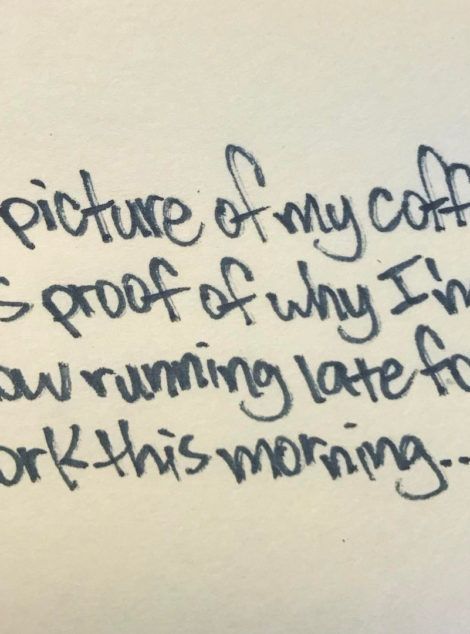 picture of my coff
s proof of why I'm
ow running late fo
ork this morning...